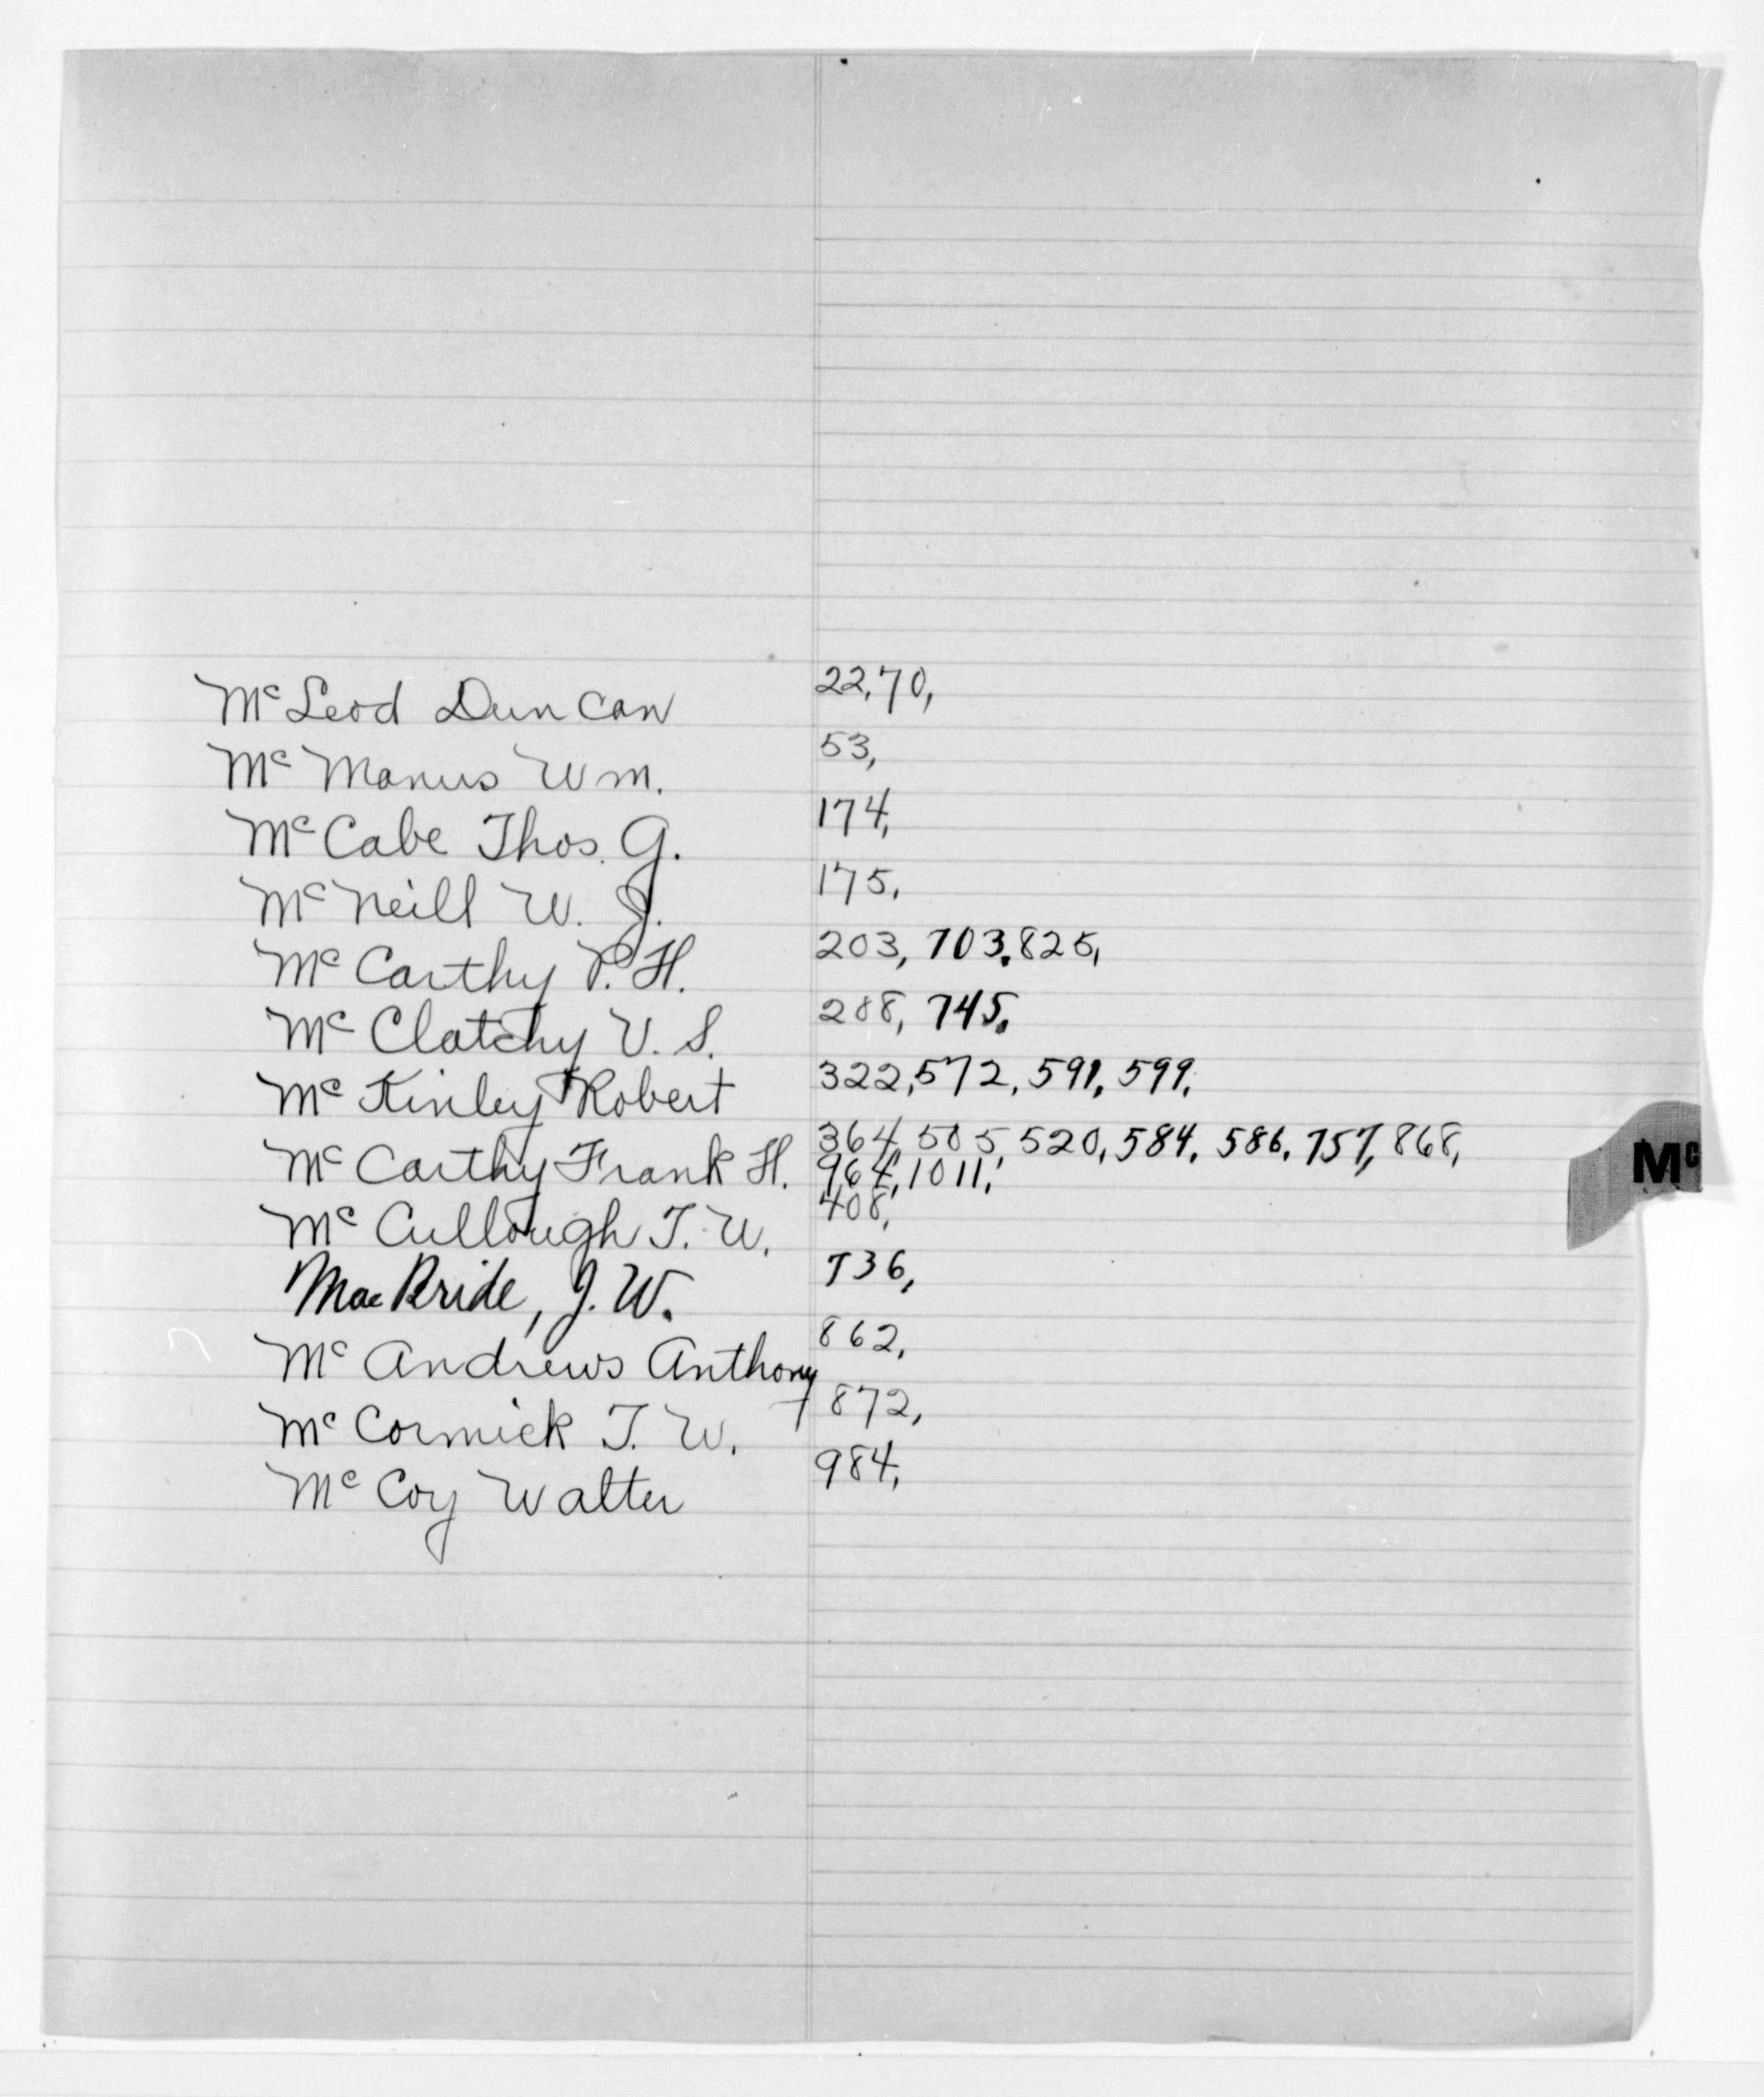 McLeod Duncan 22, 70,
McManus Wm. 53,
McCabe Thos. G. 174,
McNeill W. J. 175,
McCarthy P. H. 203, 703. 825,
McClatchy V. S. 288, 745.
McKinley Robert 322, 572, 591, 599.
McCarthy Frank H. 364, 505, 520, 584, 586, 757, 868,
964, 1011,
McCullough T. W. 408,
MacBride, J. W. 736,
McAndrews Anthony 862,
McCormick T. W. 872,
McCoy Walter 984,
Mc